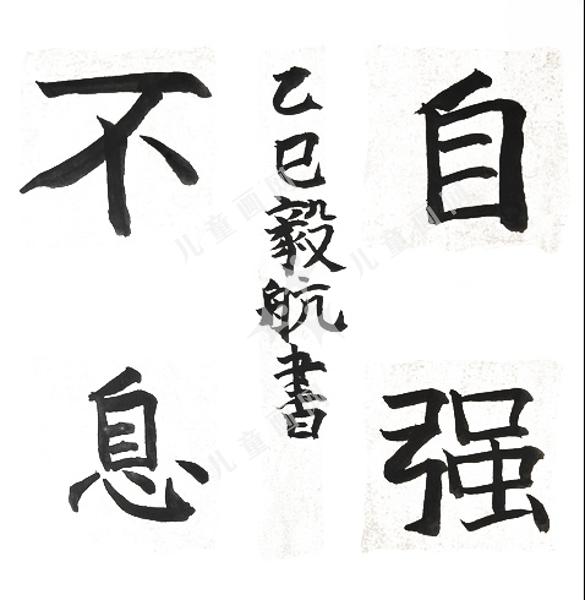 自强
不息
乙巳毅航書
儿童画网
儿童画网
儿童画网